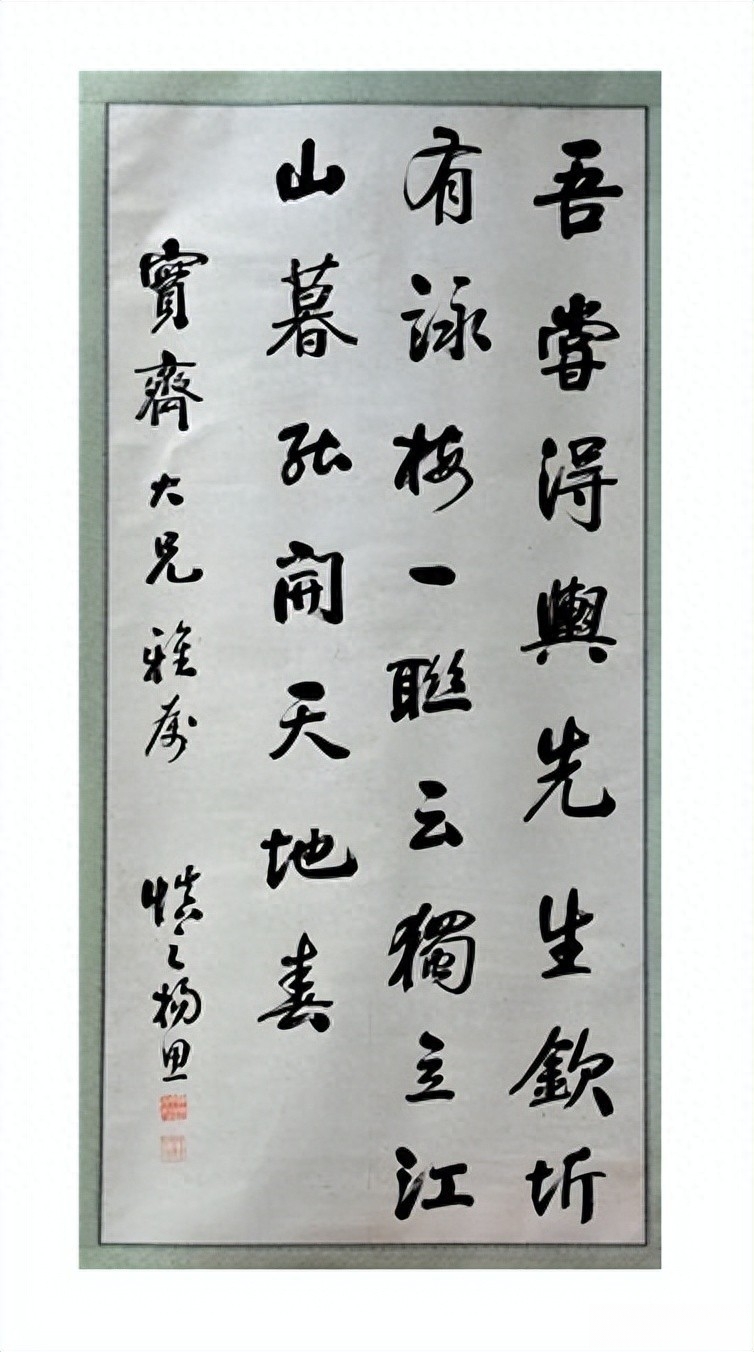 吾嘗得輿先生欽圻
有詠梅一聯云獨立江
山暮能開天地春
實齋大兄雅屬 慎之楊思